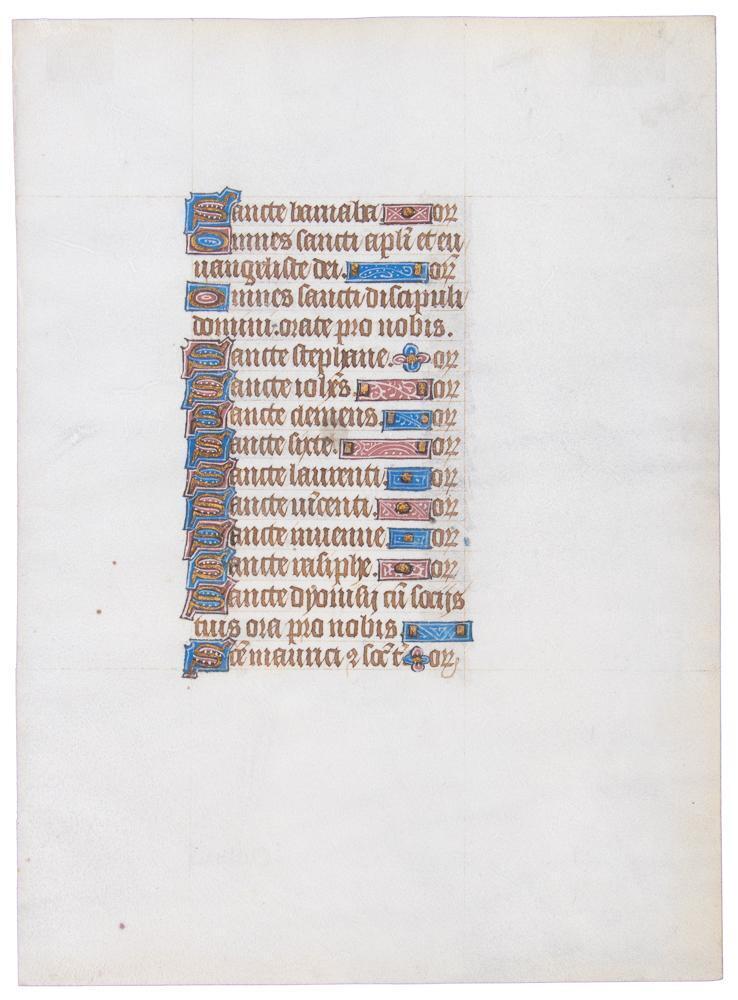 Sancte barnaba. or̄
Omnes sancti apl̄i et eu
uangeliste dei. or̄
Omnes sancti discipuli
domini. orate pro nobis.
Sancte stephane. or̄
Sancte ioh̄es. or̄
Sancte clemens. or̄
Sancte sixte. or̄
Sancte laurenti or̄
Sancte vīcenti. or̄
Sancte or̄
Sancte or̄
Sancte dyonisij cū socijs
tuis ora pro nobis.
Sc̄e maurici ⁊ soc̄ t̄ or̄